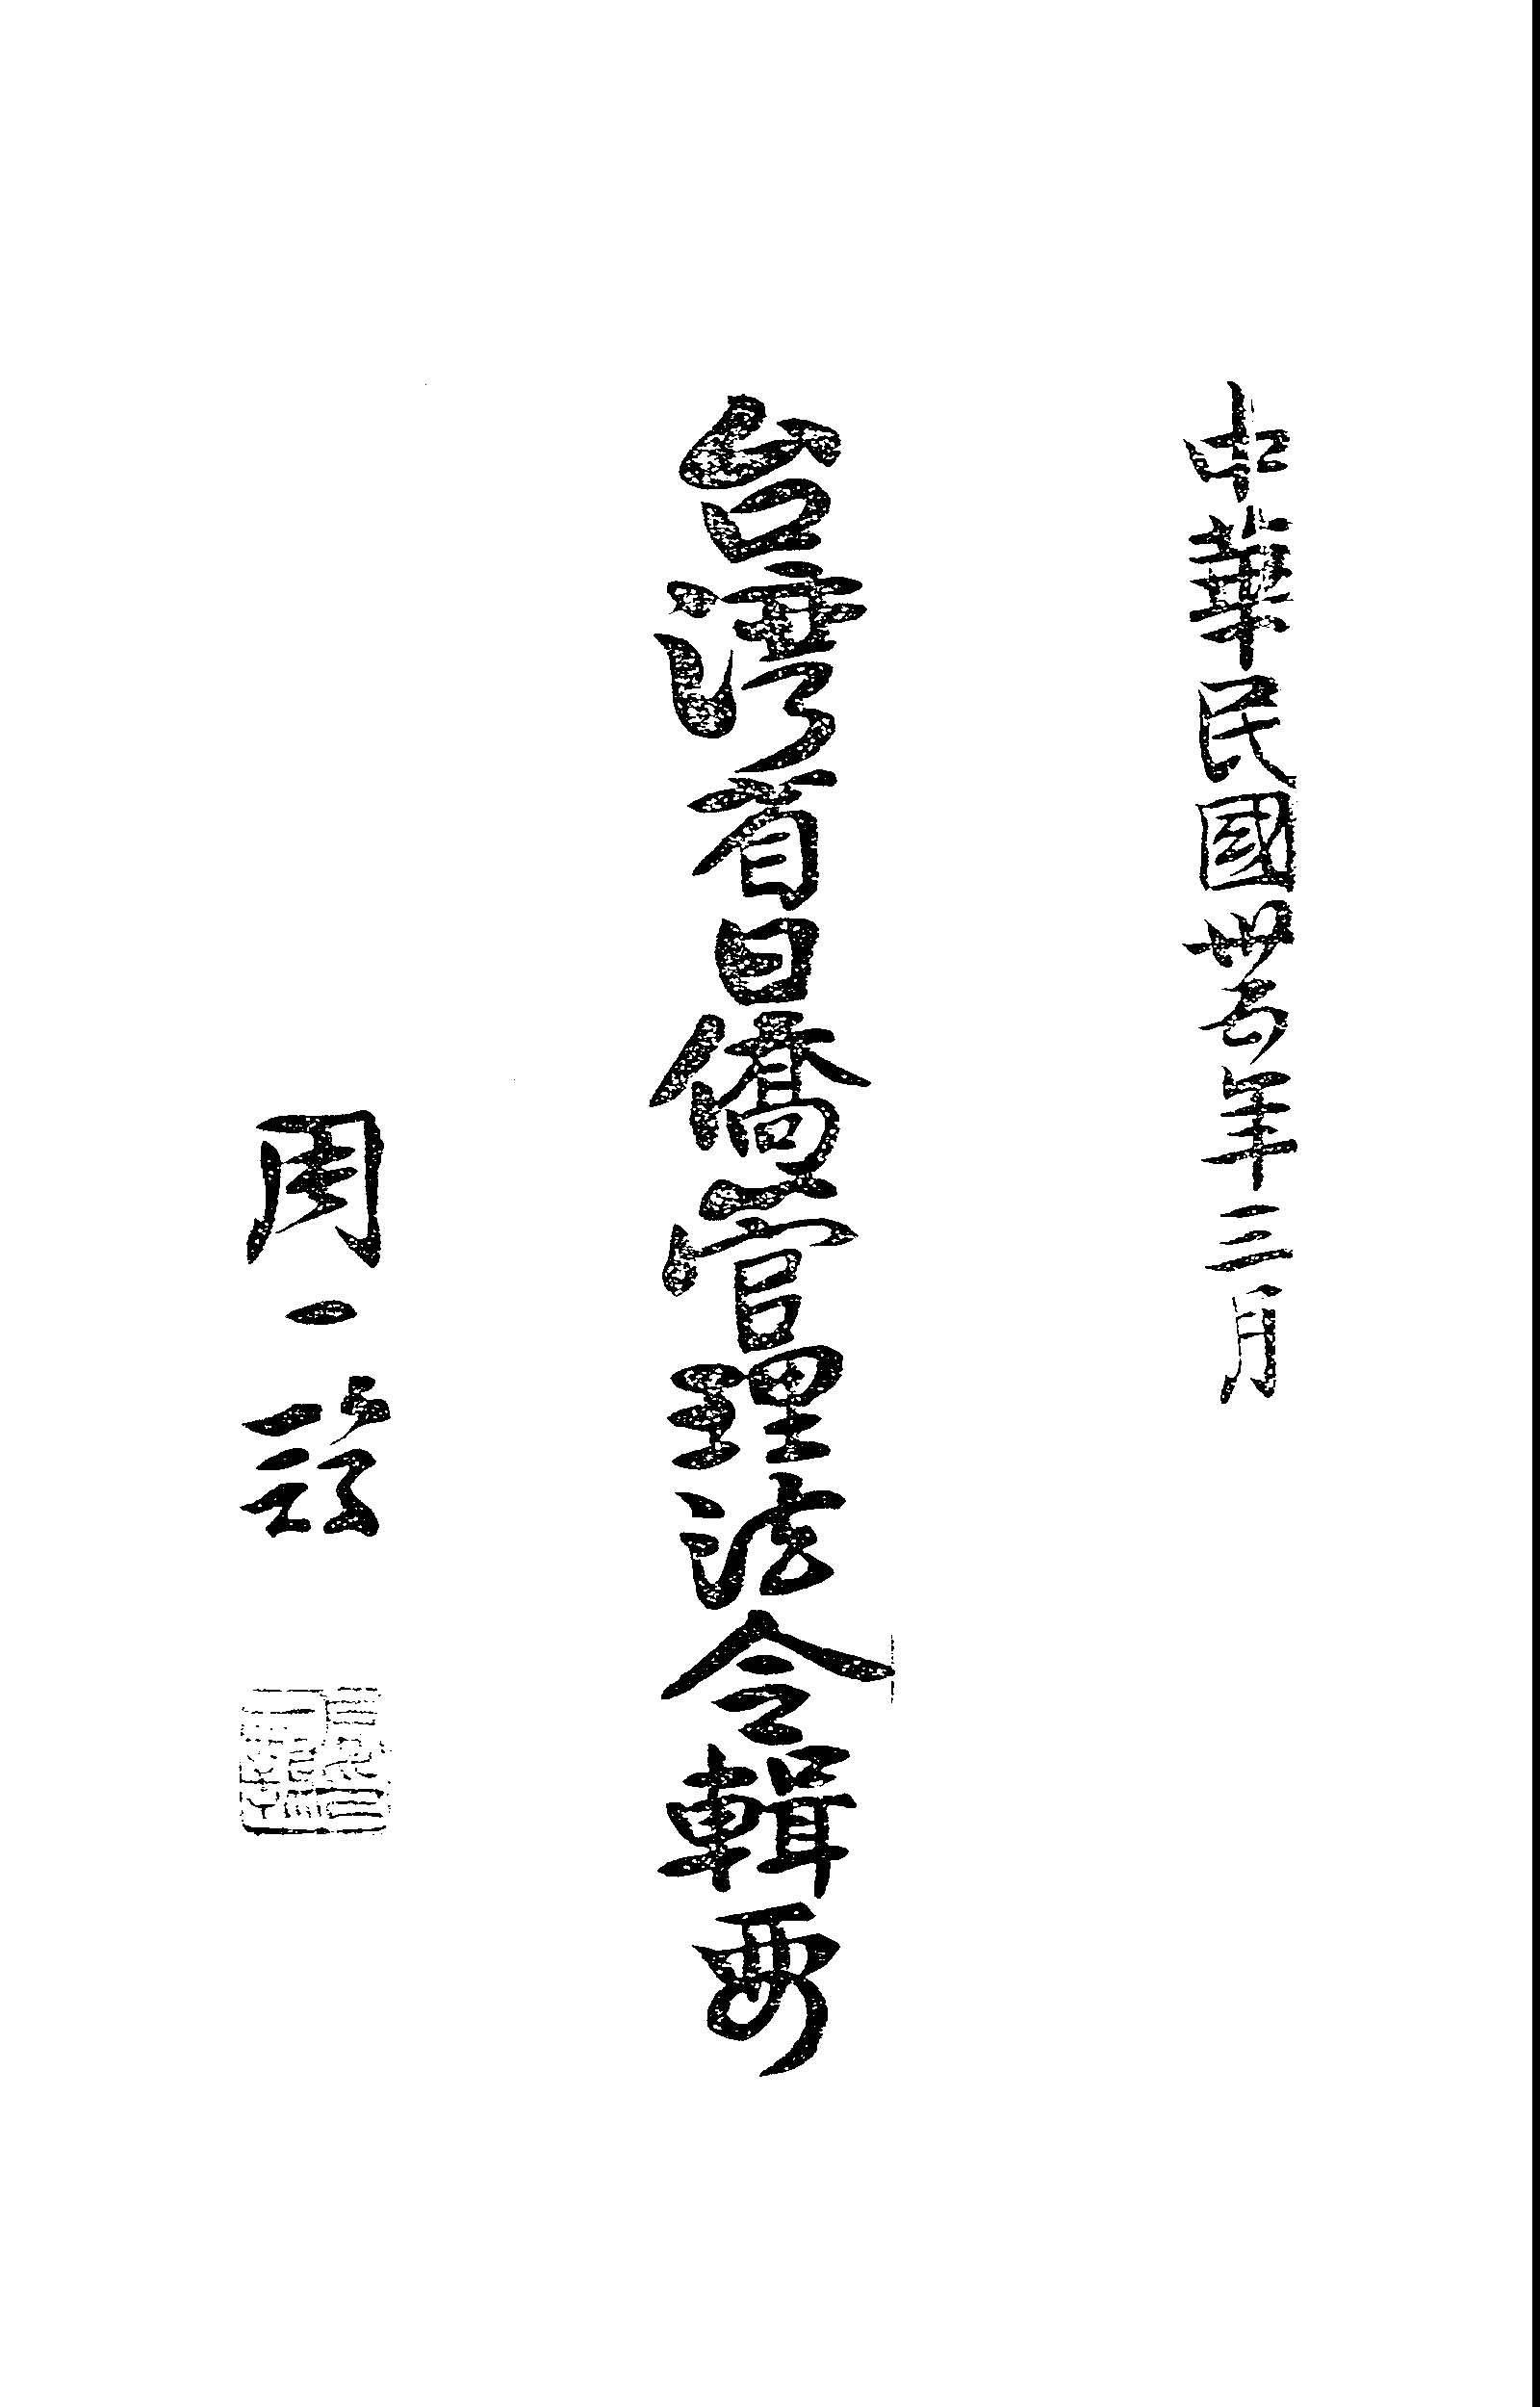 中華民國卅五年三月
台灣省日僑管理法令輯要
周一鶚